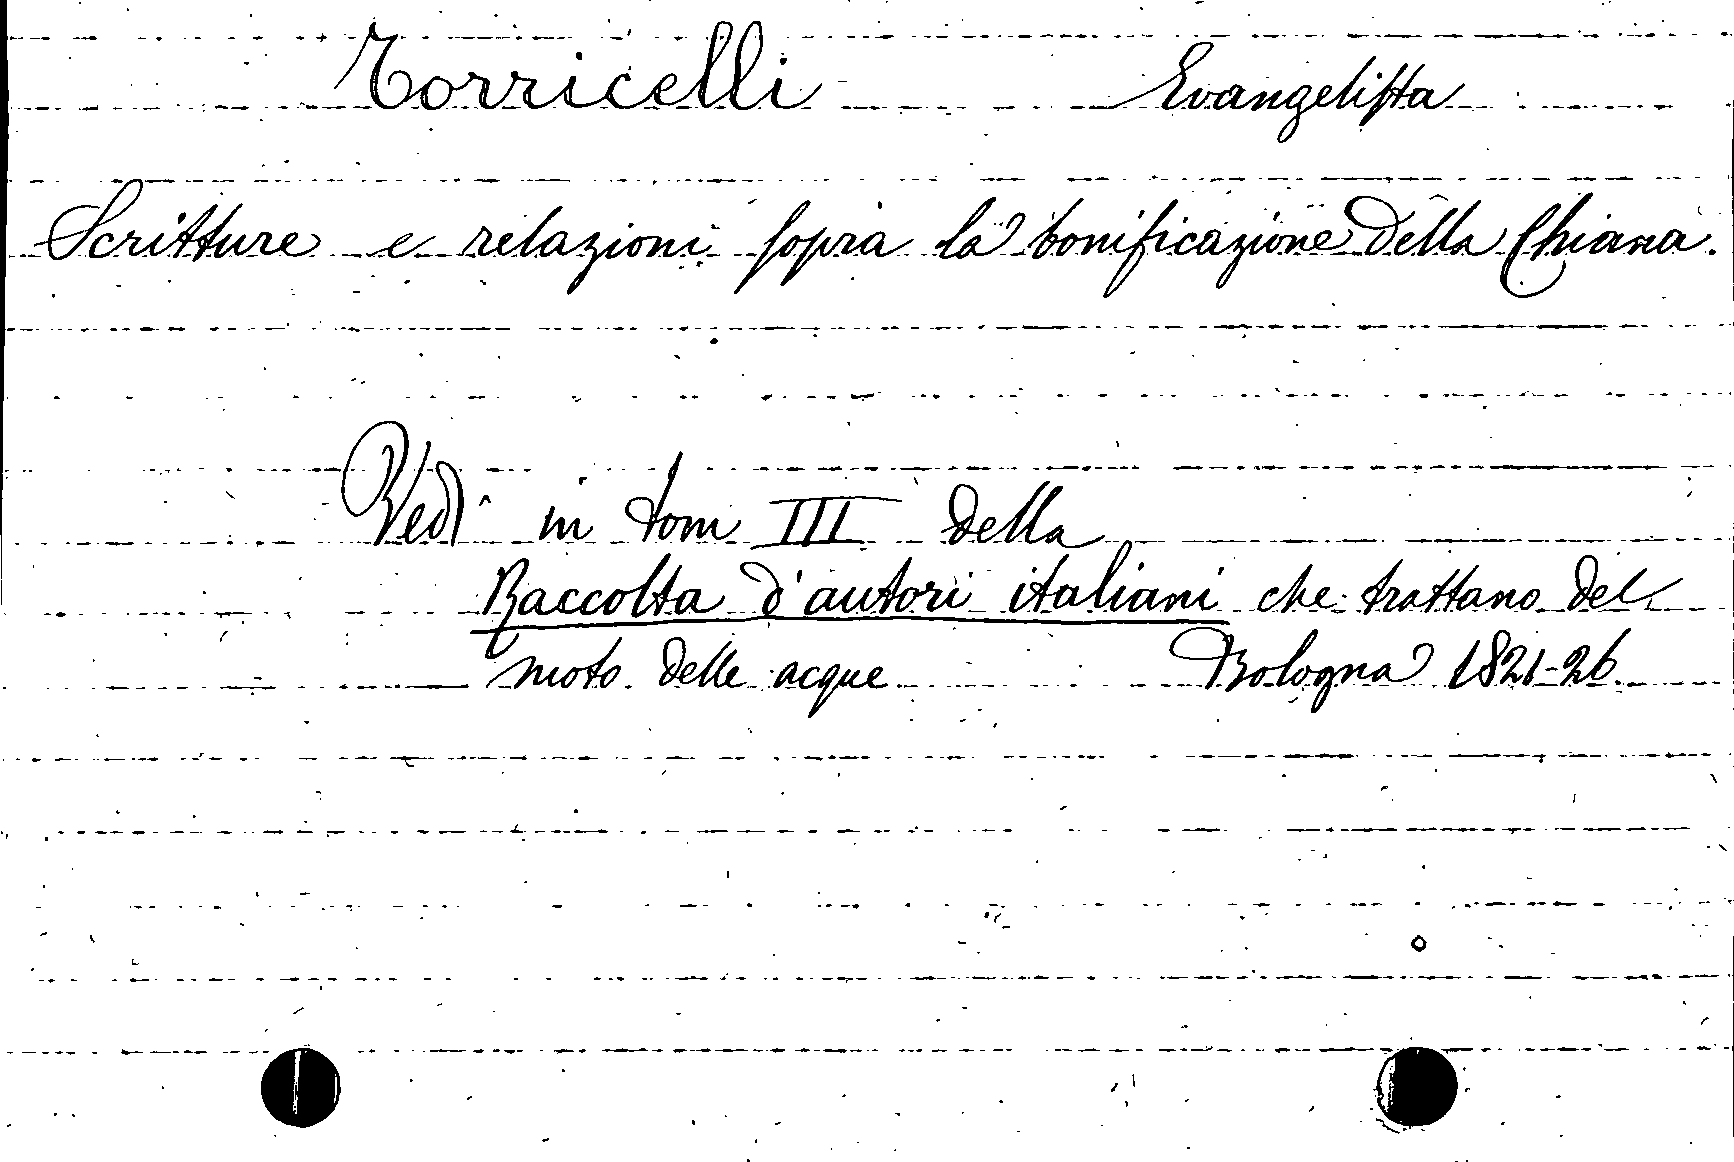 Torricelli Evangelista
Scritture e relazioni sopra la bonificazione della Chiana.
Vedi in tom III della
Raccolta d'autori italiani che trattano del
moto delle acque Bologna 1821-26.